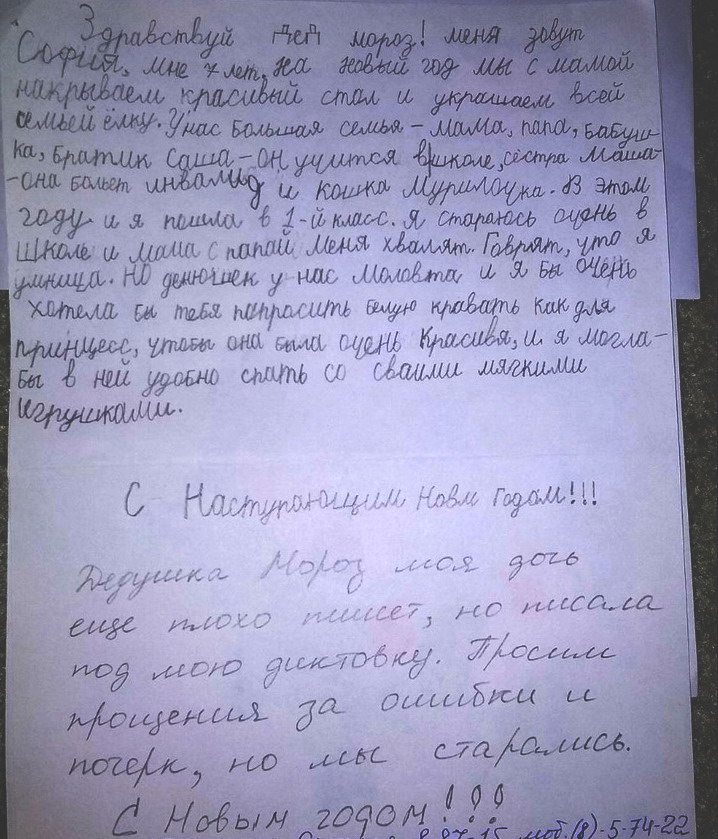 Здравствуй Дед мороз! меня зовут
София, мне 7 лет, на новый год мы с мамой
накрываем красивый стол и украшаем всей
семьей ёлку. У нас большая семья - мама, папа, бабуш-
ка, братик Саша - он учится в школе, сестра Маша -
- она болет инвалид и кошка Мурилочка. В этом
году и я пошла в 1-й класс. Я стараюсь очень в
школе и мама с папай меня хвалят. Говрят, что я
умница. Но денюшек у нас моловта и я бы очень
хотела бы тебя папрасить белую кравать как для
принцесс, чтобы она была очень красивя, и я могла-
бы в ней удобно спать со сваими мягкими
игрушками.
С Наступающим Новм Годом!!!
Дедушка Мороз моя дочь
еще плохо пишет, но писала
под мою диктовку. Просим
прощения за ошибки и
почерк, но мы старались.
С Новым годом!!!
моб.(8)-5-74-22